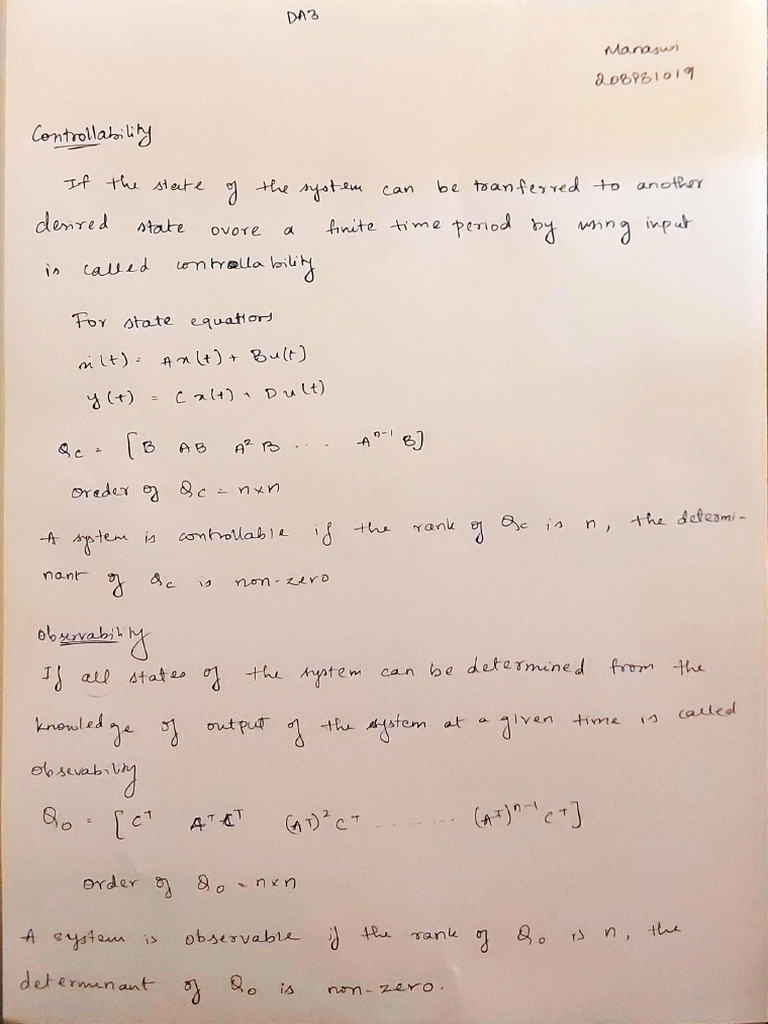 DA3
Manaswi
Controllability
If the state of the system can be tranferred to another
desired state ovore a finite time period by using input
is called controllability
For state equations
ẋ(t) = Ax(t) + Bu(t)
y(t) = Cx(t) + Du(t)
Qc = [B AB A²B ... Aⁿ⁻¹B]
oreder of Qc = n×n
A system is controllable if the rank of Qc is n, the determi-
nant of Qc is non-zero
Observability
If all states of the system can be determined from the
knowledge of output of the system at a given time is called
obsevability
Qo = [Cᵀ AᵀCᵀ (Aᵀ)²Cᵀ ......... (Aᵀ)ⁿ⁻¹ Cᵀ]
order of Qo = n×n
A system is observable if the rank of Qo is n, the
determinant of Qo is non-zero.